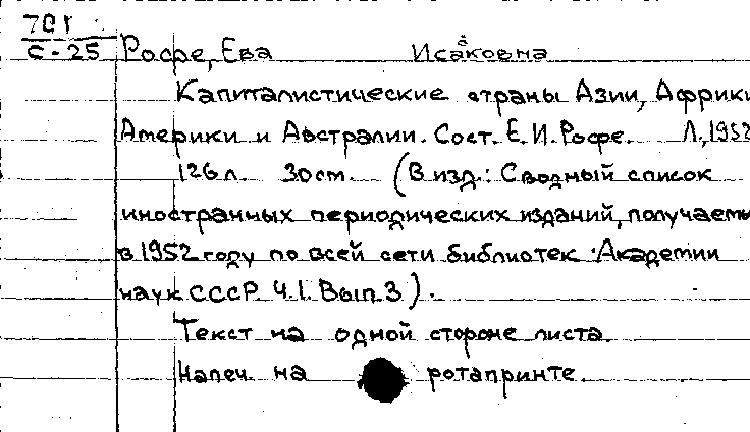 701
С-25
Росфе, Ева Исаковна
Капиталистические страны Азии, Африки
Америки и Австралии. Сост. Е.И. Росфе. Л, 1952
126 л. 30 cm. (В изд.: Сводный список
иностранных периодических изданий, получаемы
в 1952 году по всей сети библиотек Академии
наук СССР. Ч.I. Вып.3).
Текст на одной стороне листа.
Напеч. на ротапринте.